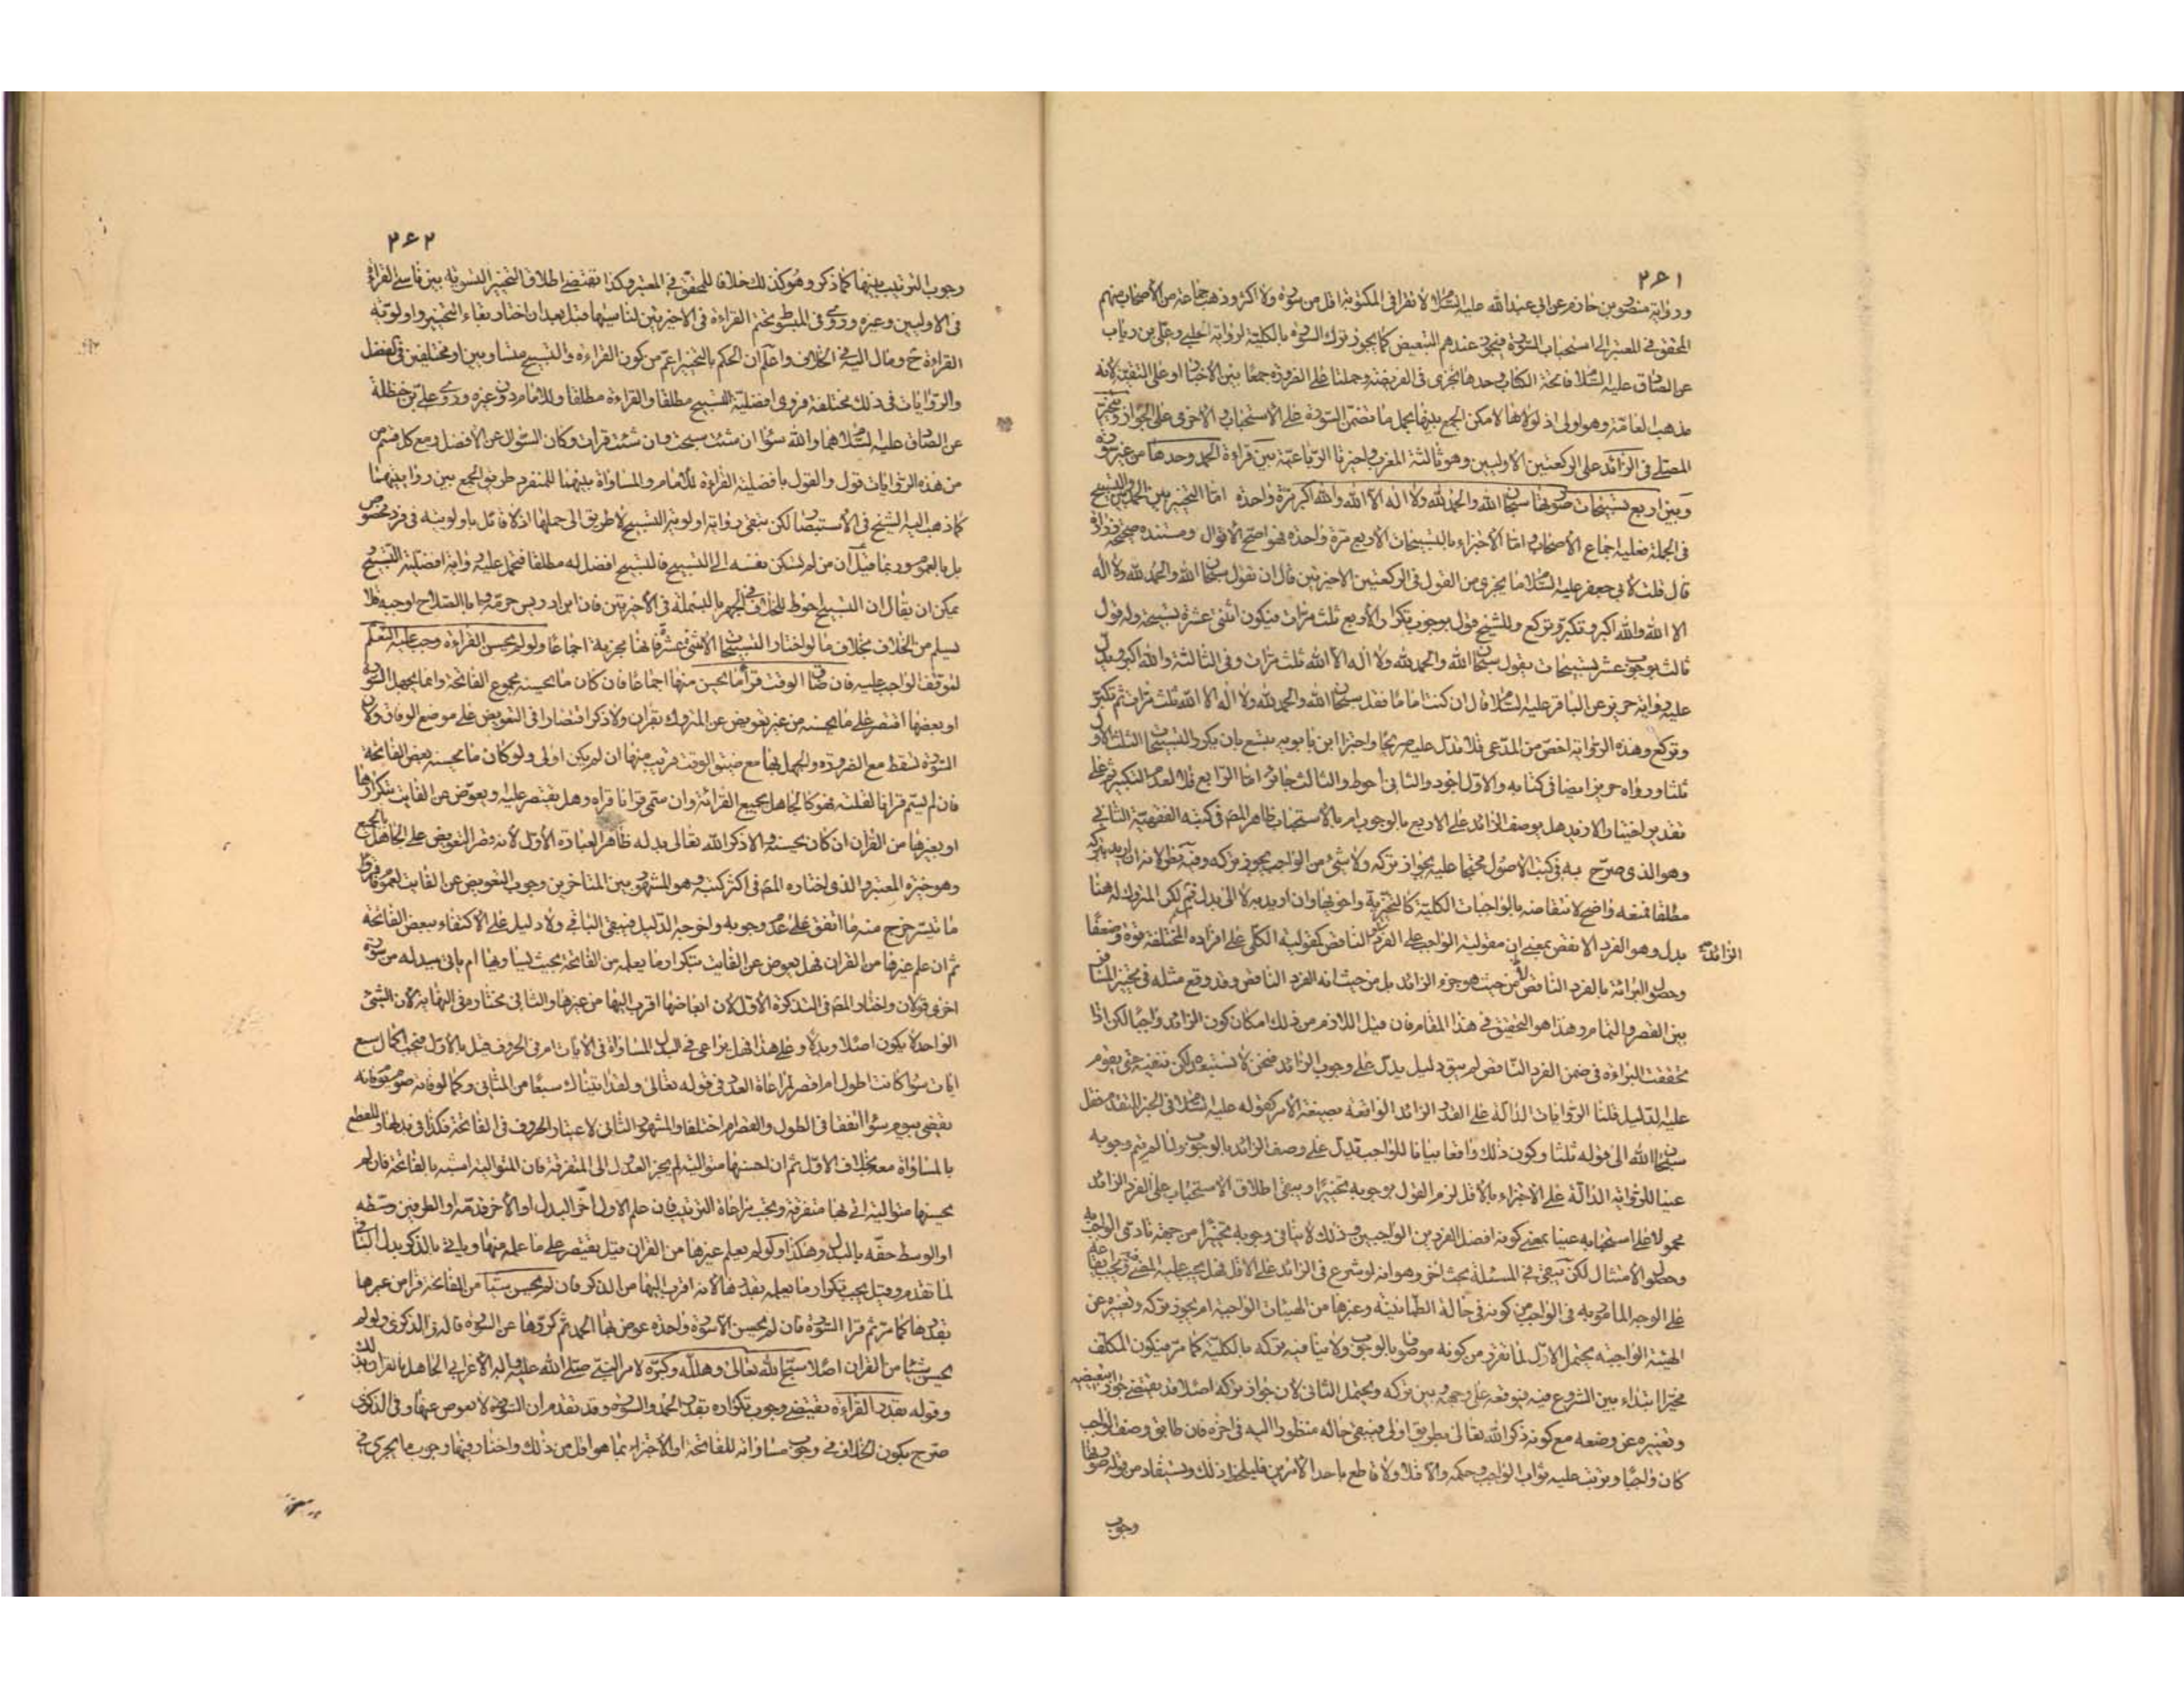 ٢٦١
ورواية منصور بن حازم عن ابي عبد الله عليه السلام لا تقرا في المكتوبة اقل من سورة ولا اكثر وذهب جماعة من الأصحاب منهم
المحقق في المعتبر الى استحباب السورة فيجوز عندهم التبعيض كما يجوز ترك السورة بالكلية لرواية الحلبي وعلي بن رياب
عن الصادق عليه السلام فاتحة الكتاب وحدها تجزى في الفريضة وحملتا على الضرورة جمعا بين الأخبار او على التقية لأنه
مذهب العامة وهو اولى اذ لولاها لامكن الجمع بينها بحمل ما تضمن السورة على الاستحباب والاخرى على الجواز ويتخير
المصلي في الزائد على الركعتين الاوليين وهو ثالثة المغرب واخيرتا الرباعية بين قراءة الحمد وحدها من غير سورة
وبين اربع تسبيحات صورتها سبحان الله والحمد لله ولا اله الا الله والله اكبر مرة واحدة اما التخيير بين الحمد والتسبيح
في الجملة فعليه اجماع الأصحاب واما الأجزاء بالتسبيحات الأربع مرة واحدة فهو اصح الأقوال ومستنده صحيحة زرارة
قال قلت لأبي جعفر عليه السلام ما يجزى من القول في الركعتين الاخيرتين قال ان تقول سبحان الله والحمد لله ولا اله
الا الله والله اكبر وتكبر وتركع وللشيخ قول بوجوب تكرار الأربع ثلث مرات فيكون اثنتى عشرة تسبيحة وله قول
ثالث بوجوب عشر تسبيحات يقول سبحان الله والحمد لله ولا اله الا الله ثلث مرات وفي الثالثة والله اكبر ويدل
عليه رواية حريز عن الباقر عليه السلام قال ان كنت اماما فقل سبحان الله والحمد لله ولا اله الا الله ثلث مرات ثم تكبر
وتركع وهذه الرواية اخص من المدعى فلا تدل عليه صريحا واختار ابن بابويه تسع بان يكرر التسبيحات الثلث الأول
ثلثا ورواه حريز ايضا في كتابه والاول اجود والثاني احوط والثالث جائز اما الرابع فلا لعدم التكبير ثم على
تقدير اختيار الازيد هل يوصف الزائد على الاربع بالوجوب ام بالاستحباب ظاهر المص في كتبه الفقهية الثاني
وهو الذى صرح به في كتب الاصول محتجا عليه بجواز تركه ولا شىء من الواجب يجوز تركه وفيه نظر لانه ان اريد بتركه
مطلقا فمنعه واضح لانتقاضه بالواجبات الكلية كالتخيرية واخوتها وان اريد به لا الى بدل قيم لكن المتروك له هنا
بدل وهو الفرد الانقص بمعنى ان مقولية الواجب على الفرد الزائد والناقص كمقولية الكلي على افراده المختلفة قوة وضعفا
وحصول البرائة بالفرد الناقص لا من حيث هو جزء الزائد بل من حيث انه الفرد الناقص وقد وقع مثله في تخيير المسافر
بين القصر والتمام وهذا هو التحقيق في هذا المقام فان قيل اللازم من ذلك امكان كون الزائد واجبا لكن اذا
تحققت البراءة في ضمن الفرد الناقص لم يبق دليل يدل على وجوب الزائد فنحن لا نستبعده لكن ننفيه حتى يقوم
عليه الدليل قلنا الروايات الدالة على القدر الزائد الواقعة بصيغة الأمر كقوله عليه السلام في الخبر المتقدم فقل
سبحان الله الى قوله ثلثا وكون ذلك واقعا بيانا للواجب تدل على وصف الزائد بالوجوب ولما لم يتم وجوبه
عينا للرواية الدالة على الاجزاء بالأقل لزم القول بوجوبه تخييرا ويبقى اطلاق الاستحباب على الفرد الزائد
محمولا على استحبابه عينا بمعنى كونه افضل الفردين الواجبين وذلك لا ينافي وجوبه تخييرا من جهة تادى الواجب به
وحصول الامتثال لكن يبقى في المسئلة بحث اخر وهو انه لو شرع في الزائد على الاقل فهل يجب عليه المضي فيه ويجب ايقاعه
على الوجه المامور به في الواجب من كونه في حالة الطمانينة وغيرها من الهيئات الواجبة ام يجوز تركه وتغيره عن
الهيئة الواجبة يحتمل الاول لما تقرر من كونه موصوفا بالوجوب ولا ينافيه تركه بالكلية كما مر فيكون المكلف
مخيرا ابتداء بين الشروع فيه فيوقعه على وجهه وبين تركه ويحتمل الثاني لان جواز تركه اصلا قد يقتضي جواز تبعيضه
وتغييره عن وضعه مع كونه ذكرا لله تعالى بطريق اولى فيبقى حاله منظورا اليه في اخره فان طابق وصف الواجب
كان واجبا ويترتب عليه ثواب الواجب وحكمه والا فلا ولا قاطع باحد الامرين فليلحظ ذلك ويستفاد من قوله صورتها
وجوب
الزائد
٢٦٢
وجوب الترتيب بينها كما ذكر وهو كذلك خلافا للمحقق في المعتبر وكذا يقتضي اطلاق التخيير التسوية بين ناسي القراءة
في الاوليين وغيره وروى في المبسوط بتحتم القراءة في الاخيرتين لناسيها قبل بعد ان اختار بقاء التخيير واولوية
القراءة ح ومال اليه في الخلاف واعلم ان الحكم بالتخيير اعم من كون القراءة والتسبيح متساويين او مختلفين في الفضل
والروايات في ذلك مختلفة فروى افضلية التسبيح مطلقا والقراءة مطلقا وللامام دون غيره وروى علي بن حنظلة
عن الصادق عليه السلام هما والله سواء ان شئت سبحت وان شئت قرات وكان السؤال عن الأفضل ومع كل قسم من
من هذه الروايات قول والقول بافضلية القراءة للأمام والمساواة بينهما للمنفرد طريق الجمع بين رواياتهما
كما ذهب اليه الشيخ في الأستبصار لكن يبقى رواية اولوية التسبيح لا طريق الى حملها اذ لا قائل باولويته في فرد مخصوص
بل بالعموم وربما قيل ان من لم تسكن نفسه الى التسبيح فالتسبيح افضل له مطلقا فتحمل عليه رواية افضلية التسبيح
يمكن ان يقال ان التسبيح احوط للخلاف في الجهر بالبسملة في الأخيرتين فان ابن ادريس حرمه وابا الصلاح اوجبه فلا
يسلم من الخلاف بخلاف ما لو اختار التسبيحات الاثنى عشر فانها مجزية اجماعا ولو لم يحسن القراءة وجب عليه التعلم
لتوقف الواجب عليه فان ضاق الوقت قرأ ما يحسن منها اجماعا فان كان ما يحسنه مجموع الفاتحة وانما يجهل السورة
او بعضها اقتصر على ما يحسنه من غير تعويض عن المتروك بقران ولا ذكر اقتصارا في التعويض على موضع الوفاق ولان
السورة تسقط مع الضرورة والجهل بها مع ضيق الوقت قريب منها ان لم يكن اولى ولو كان ما يحسنه بعض الفاتحة
فان لم يسم قرانا لقلته فهو كالجاهل بجميع القرائة وان سمى قرانا قراه وهل يقتصر عليه او يعوض عن الفايت بتكرارها
او بغيرها من القران ان كان يحسنه والا ذكر الله تعالى بدله ظاهر العبارة الأول لأنه قصر التعويض على الجاهل بالجميع
وهو خيرة المعتبر والذى اختاره المص في اكثر كتبه وهو المشهور بين المتاخرين وجوب التعويض عن الفايت لعموم فاقرؤا
ما تيسر خرج منه ما اتفق على عدم وجوبه واخرجه الدليل فيبقى الباقي ولا دليل على الأكتفاء ببعض الفاتحة
ثم ان علم غيرها من القران فهل يعوض عن الفايت بتكرار ما يعلمه من الفاتحة بحيث يساويها ام ياتى ببدله من سورة
اخرى قولان واختار المص في التذكرة الأول لأن ابعاضها اقرب اليها من غيرها والثاني مختاره في النهاية لأن الشىء
الواحد لا يكون اصلا وبدلا وعلى هذا فهل يراعى في البدل المساواة في الايات ام في الحروف قيل بالأول فيجب اكمال سبع
ايات سواء كانت اطول ام اقصر لمراعاة العدد في قوله تعالى ولقد اتيناك سبعا من المثاني وكما لو فاته صوم يوم فانه
يقضي بيوم سواء اتفقا في الطول والقصر ام اختلفا والمشهور الثاني لاعتبار الحروف في الفاتحة فكذا في بدلها وللقطع
بالمساواة معه بخلاف الاول ثم ان احسنها متوالية لم يجز العدول الى المتفرقة فان المتوالية اشبه بالفاتحة فان لم
يحسنها متوالية اتى بها متفرقة ويجب مراعاة الترتيب فان علم الاول اخر البدل او الأخر قدمه او الطرفين وسطه
او الوسط حفه بالبدل وهكذا ولو لم يعلم غيرها من القران قيل يقتصر على ما علمه منها وياتي بالذكر بدل الباقي
لما تقدم وقيل يجب تكرار ما يعلمه بقدرها لأنه اقرب اليها من الذكر فان لم يحسن شيئا من الفاتحة قرا من غيرها
بقدرها كما مر ثم قرا السورة فان لم يحسن الا سورة واحدة عوض بها الحمد ثم كررها عن السورة قاله في الذكرى ولو لم
يحسن شيئا من القران اصلا سبح الله تعالى وهلله وكبره لامر النبي صلى الله عليه واله الأعرابي الجاهل بالقران بذلك
وقوله بقدر القراءة يقتضي وجوب تكراره بقدر الحمد والسورة وقد تقدم ان السورة لا يعوض عنها وفي الذكرى
صرح بكون الخلاف في وجوب مساواته للفاتحة او الأجزاء بما هو اقل من ذلك واختار فيها وجوب ما يجزى في